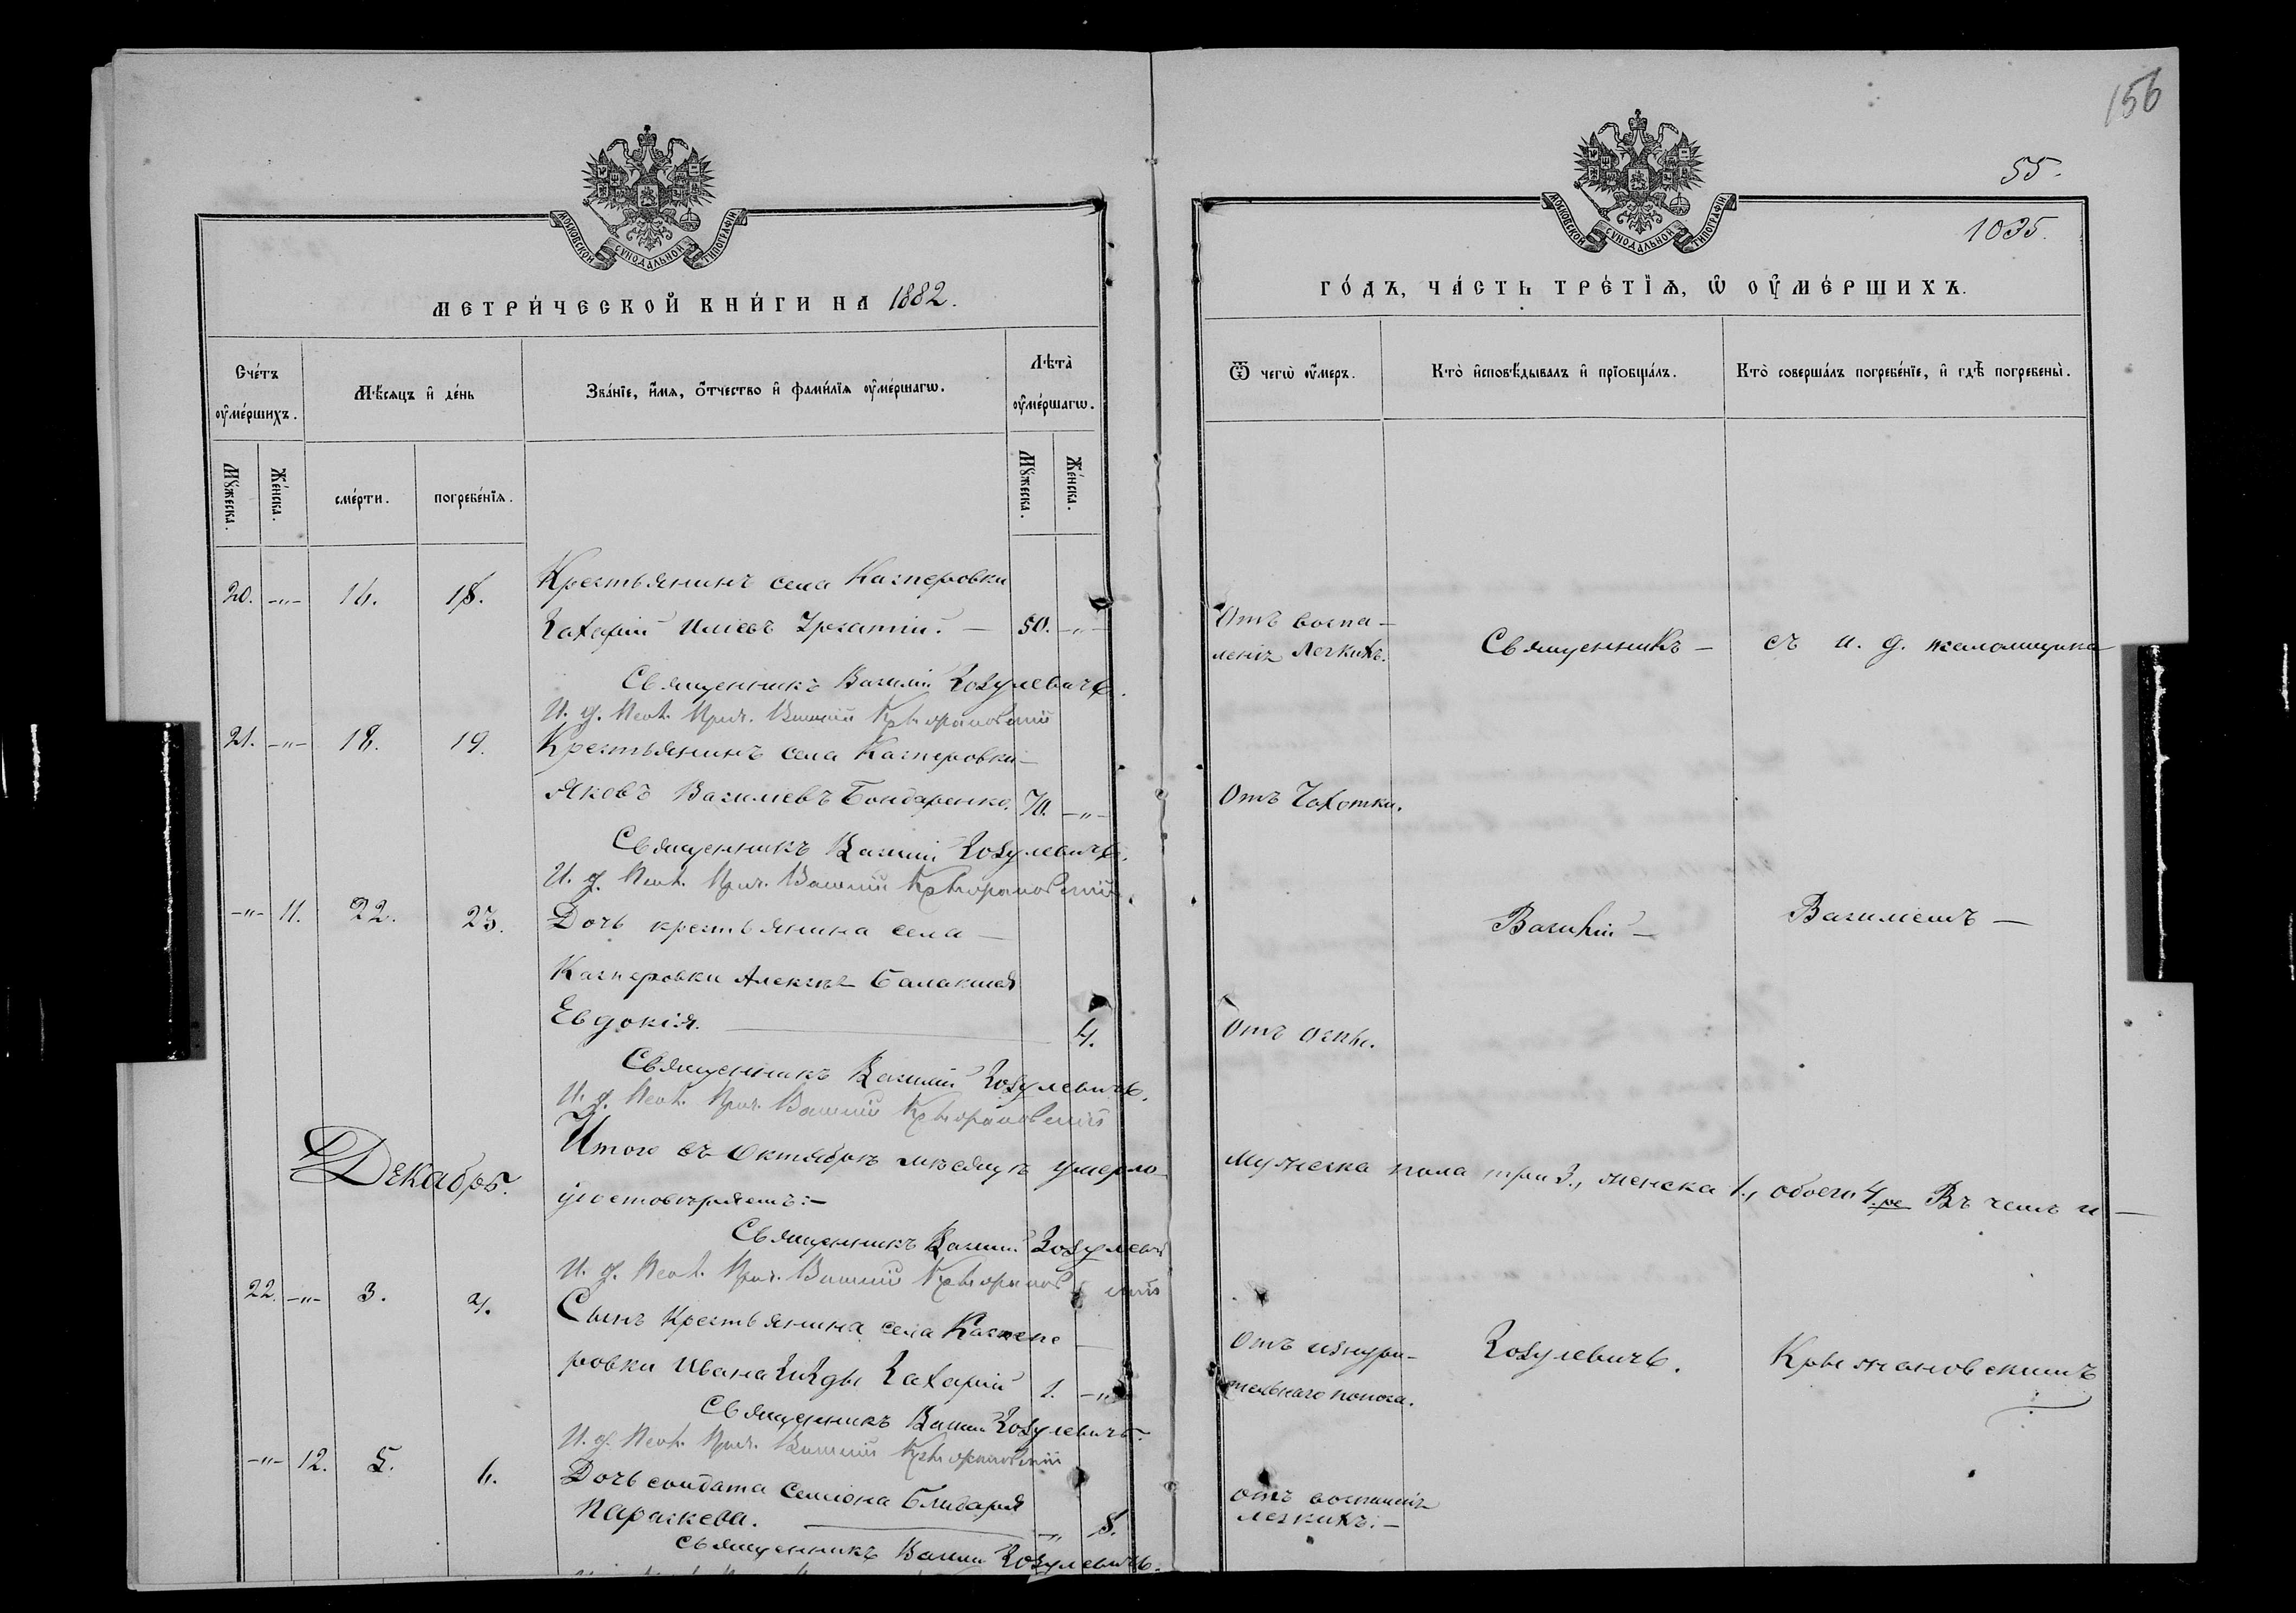 156
55.
1035.
МОСКОВСКОЙ СѴНОДАЛЬНОЙ ТИПОГРАФІИ
МЕТРИ́ЧЕСКОЙ КНИ́ГИ НА 1882.
Сче́тъ ᲂу҆ме́ршихъ.
Мѣ́сяцъ и҆ де́нь
Зва́нїе, и҆́мѧ, ѻ҆́тчество и҆ фами́лїѧ ᲂу҆ме́ршагѡ.
Лѣта̀ ᲂу҆ме́ршагѡ.
Мꙋ́жеска.
Же́нска.
сме́рти.
погребе́нїѧ.
Мꙋ́жеска.
Же́нска.
20. -„- 16. 18. Крестьянинъ села Касперовки
Захарій Иліевъ — 50. -„-
Священникъ Василій Козулевичъ.
И. д. Псал. Прич. Василій Крыжановскій
21. -„- 18. 19. Крестьянинъ села Касперовки —
Яковъ Васильевъ Бондаренко. 70. -„-
Священникъ Василій Козулевичъ.
И. д. Псал. Прич. Василій Крыжановскій.
-„- 11. 22. 23. Дочь крестьянина села —
Касперовки Алексѣя Балакшея
Евдокія. — 4.
Священникъ Василій Козулевичъ.
И. д. Псал. Прич. Василій Крыжановскій
Итого въ Октябрѣ мѣсяцѣ умерло
Декабрь.
удостовѣряемъ: —
Священникъ Василій Козулевичъ
И. д. Псал. Прич. Василій Крыжановскій
22. -„- 3. 4. Сынъ крестьянина села Каспе
ровки Ивана Захарій 1. -„-
Священникъ Василій Козулевичъ.
И. д. Псал. Прич. Василій Крыжановскій
-„- 12. 5. 6. Дочь солдата Семіона Блидаря
Параскева. — -„- 8.
Священникъ Василій Козулевичъ.
МОСКОВСКОЙ СѴНОДАЛЬНОЙ ТИПОГРАФІИ
ГО́ДЪ, ЧА́СТЬ ТРЕ́ТЇѦ, Ѡ҆ ОУ҆МЕ́РШИХЪ.
Ѿ чегѡ̀ ᲂу҆́меръ.
Кто̀ и҆сповѣ́дывалъ и҆ прїѡбща́лъ.
Кто̀ соверша́лъ погребе́нїе, и҆ гдѣ̀ погребены̀.
Отъ воспа-
ленія легкихъ.
Священникъ —
съ и. д. псаломщика
Отъ Чахотки.
Василій —
Василіемъ —
Отъ оспы.
мужеска пола три 3., женска 1., обоего 4.ре Въ чемъ и —
Отъ изнури-
тельнаго поноса.
Козулевичъ.
Крыжановскимъ
отъ воспаленія
легкихъ. —